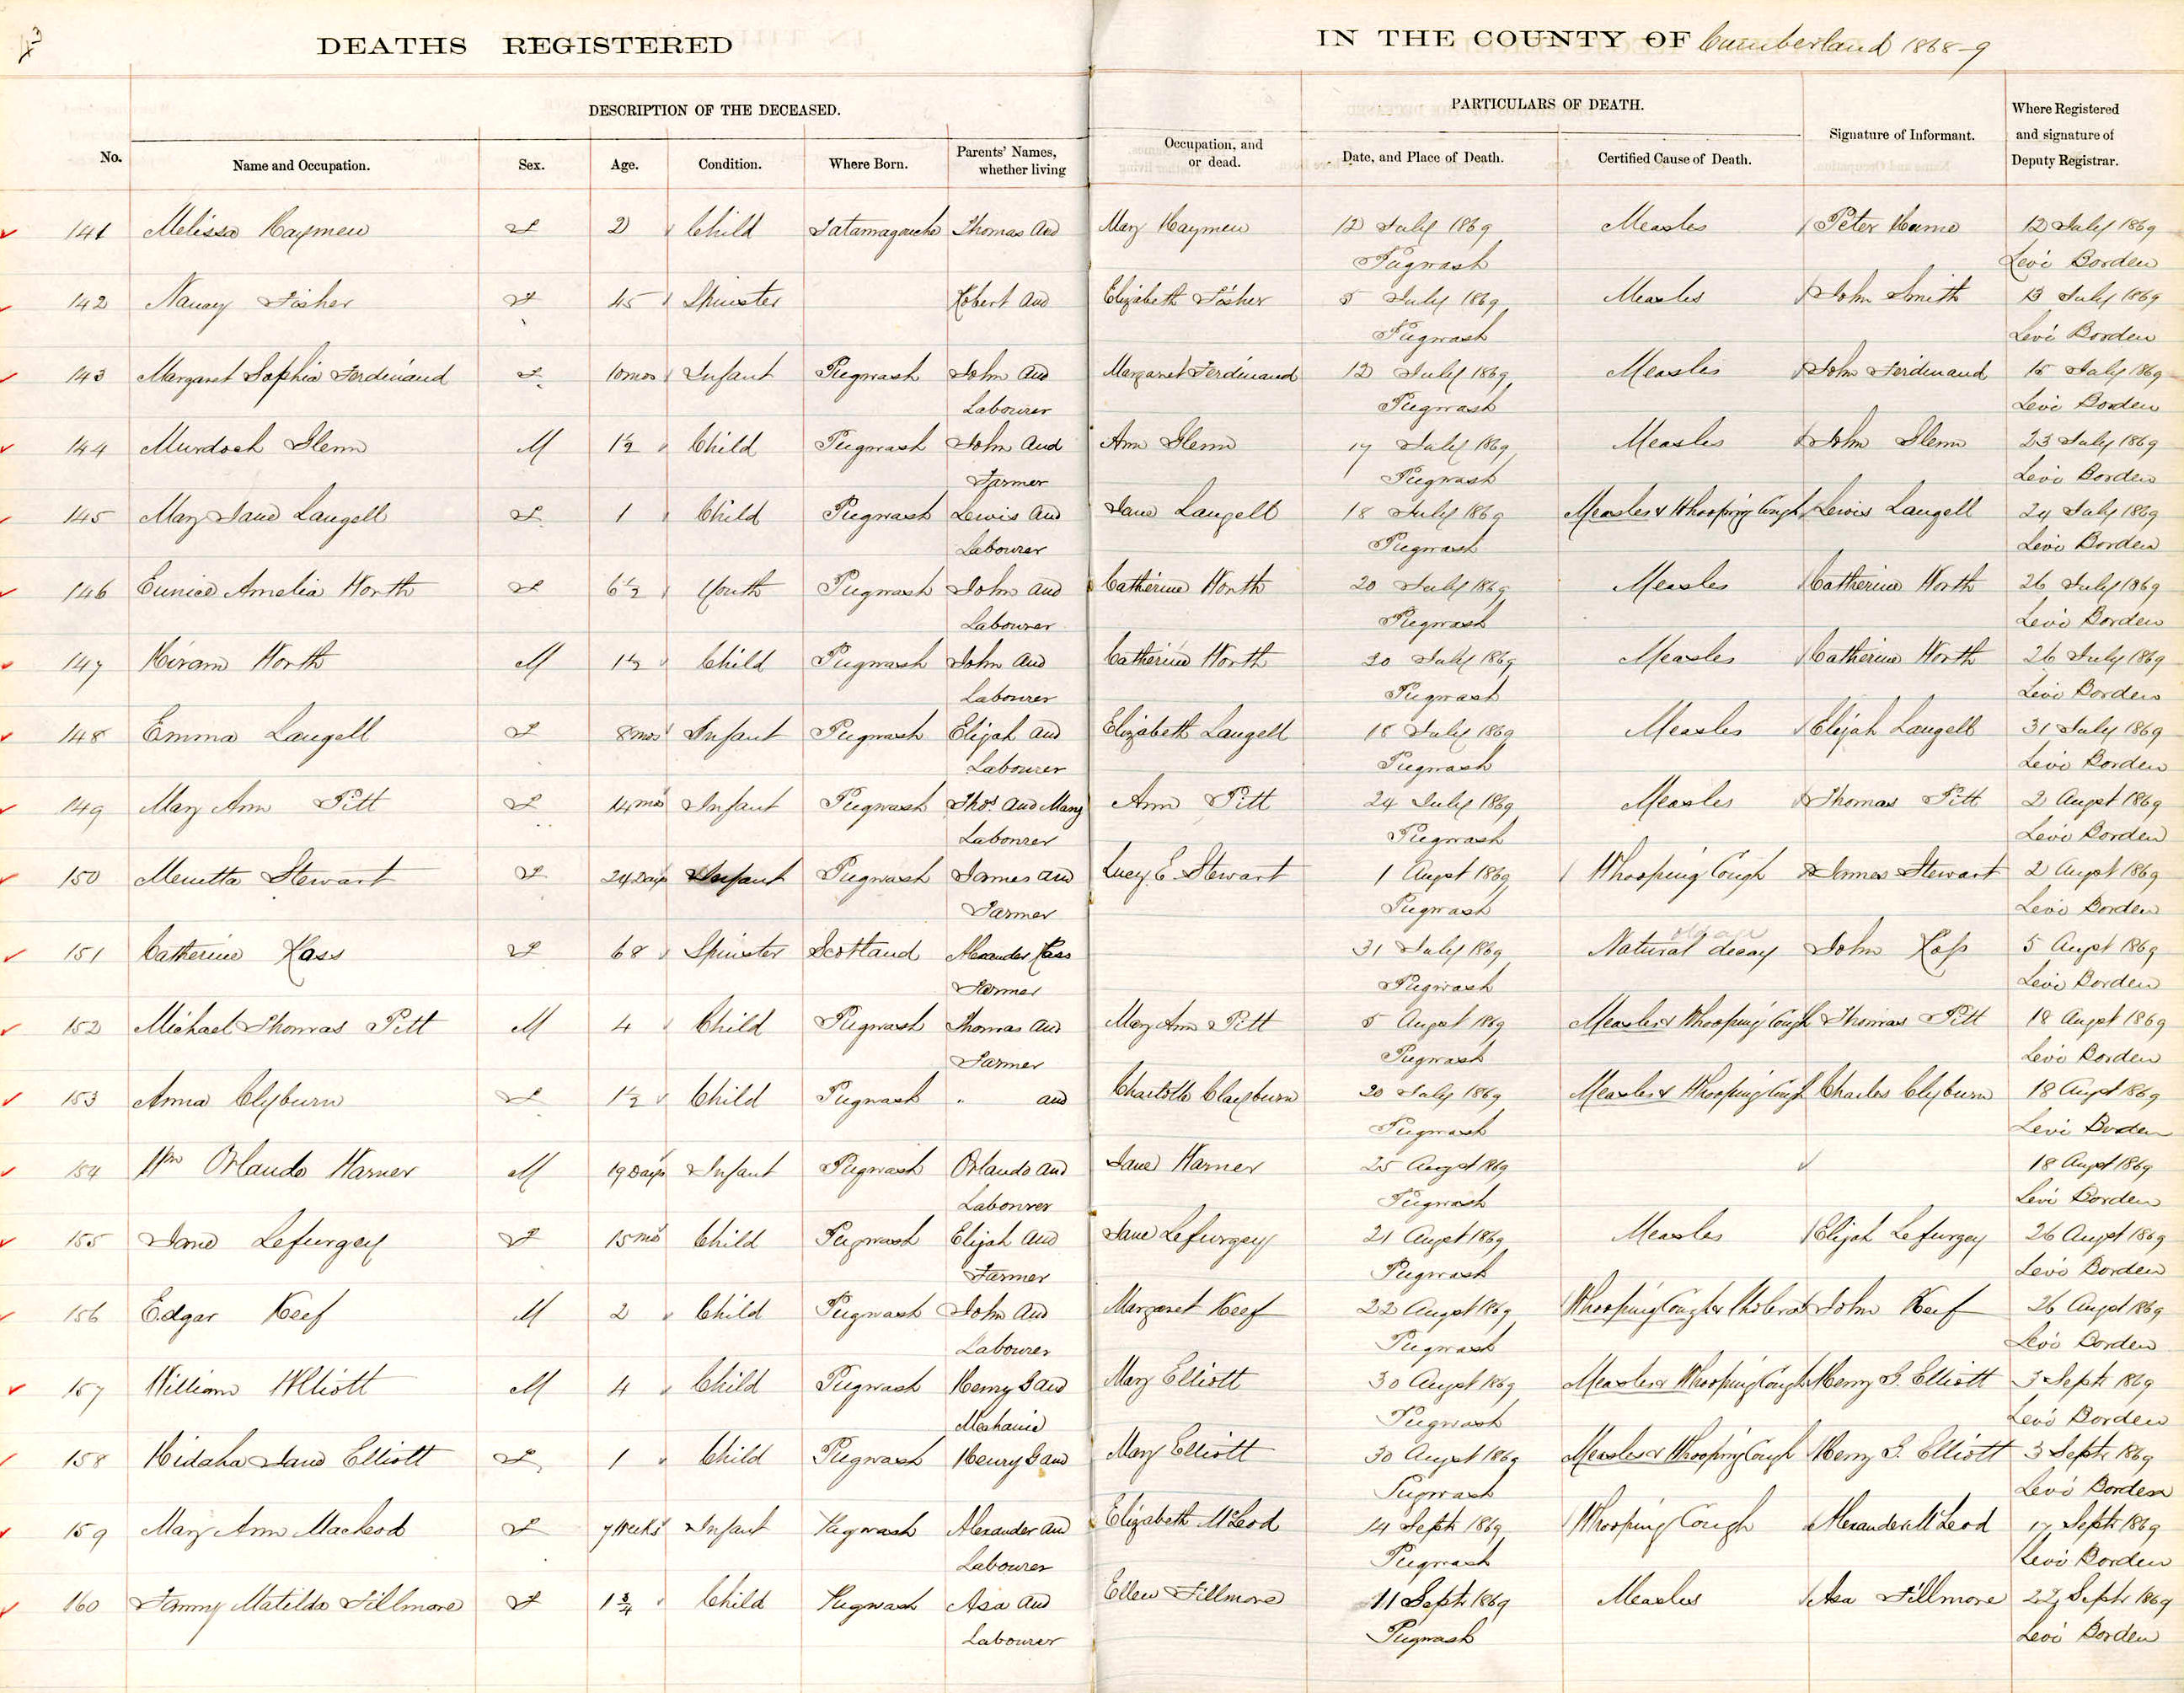 43
DEATHS REGISTERED IN THE COUNTY OF Cumberland 1868-9
DESCRIPTION OF THE DECEASED. PARTICULARS OF DEATH.
No. Name and Occupation. Sex. Age. Condition. Where Born. Parents' Names, whether living Occupation, and or dead. Date, and Place of Death. Certified Cause of Death. Signature of Informant. Where Registered and signature of Deputy Registrar.
141 Melissa Haymen F 2 Child Tatamagouche Thomas and Mary Haymen 12 July 1869 Measles Peter 12 July 1869
Pugwash Levi Borden
142 Nancy Fisher F 45 Spinster Robert and Elizabeth Fisher 5 July 1869 Measles John Smith 13 July 1869
Pugwash Levi Borden
143 Margaret Sophia Ferdinand F 10 mos Infant Pugwash John and Margaret Ferdinand 12 July 1869 Measles John Ferdinand 15 July 1869
Labourer Pugwash Levi Borden
144 Murdoch Glenn M 1½ Child Pugwash John and Ann Glenn 17 July 1869 Measles John Glenn 23 July 1869
Farmer Pugwash Levi Borden
145 Mary Jane Langell F 1 Child Pugwash Lewis and Jane Langell 18 July 1869 Measles & Whooping Cough Lewis Langell 24 July 1869
Labourer Pugwash Levi Borden
146 Eunice Amelia Worth F 6½ Youth Pugwash John and Catherine Worth 20 July 1869 Measles Catherine Worth 26 July 1869
Labourer Pugwash Levi Borden
147 Hiram Worth M 1½ Child Pugwash John and Catherine Worth 20 July 1869 Measles Catherine Worth 26 July 1869
Labourer Pugwash Levi Borden
148 Emma Langell F 8 mos Infant Pugwash Elijah and Elizabeth Langell 15 July 1869 Measles Elijah Langell 31 July 1869
Labourer Pugwash Levi Borden
149 Mary Ann Pitt F 14 mos Infant Pugwash Thos. and Mary Ann Pitt 24 July 1869 Measles Thomas Pitt 2 Augst 1869
Labourer Pugwash Levi Borden
150 Menetta Stewart F 24 Days Infant Pugwash James and Lucy E Stewart 1 Augst 1869 Whooping Cough James Stewart 2 Augst 1869
Farmer Pugwash Levi Borden
151 Catherine Ross F 68 Spinster Scotland Alexander Ross 31 July 1869 Natural decay John Ross 5 Augst 1869
Farmer Pugwash Levi Borden
152 Michael Thomas Pitt M 4 Child Pugwash Thomas and Mary Ann Pitt 5 Augst 1869 Measles & Whooping Cough Thomas Pitt 18 Augst 1869
Farmer Pugwash Levi Borden
153 Anna Clyburn F 1½ Child Pugwash " and Charlotte Clayburn 20 July 1869 Measles & Whooping Cough Charles Clyburn 18 Augst 1869
Pugwash Levi Borden
154 Wm Orlando Warner M 19 Days Infant Pugwash Orlando and Jane Warner 25 Augst 1869 18 Augst 1869
Labourer Pugwash Levi Borden
155 Jane Lefurgey F 15 mos Child Pugwash Elijah and Jane Lefurgey 21 Augst 1869 Measles Elijah Lefurgey 26 Augst 1869
Farmer Pugwash Levi Borden
156 Edgar Keef M 2 Child Pugwash John and Margaret Keef 22 Augst 1869 Whooping Cough & John Keef 26 Augst 1869
Labourer Pugwash Levi Borden
157 William Elliott M 4 Child Pugwash Henry G and Mary Elliott 30 Augst 1869 Measles & Whooping Cough Henry G. Elliott 3 Septr 1869
Mechanic Pugwash Levi Borden
158 Hidaha Jane Elliott F 1 Child Pugwash Henry G and Mary Elliott 30 Augst 1869 Measles & Whooping Cough Henry G. Elliott 3 Septr 1869
Pugwash Levi Borden
159 Mary Ann MacLeod F 7 Weeks Infant Pugwash Alexander and Elizabeth McLeod 14 Septr 1869 Whooping Cough Alexander McLeod 17 Septr 1869
Labourer Pugwash Levi Borden
160 Fanny Matilda Fillmore F 1¾ Child Pugwash Asa and Ellen Fillmore 11 Septr 1869 Measles Asa Fillmore 22 Septr 1869
Labourer Pugwash Levi Borden